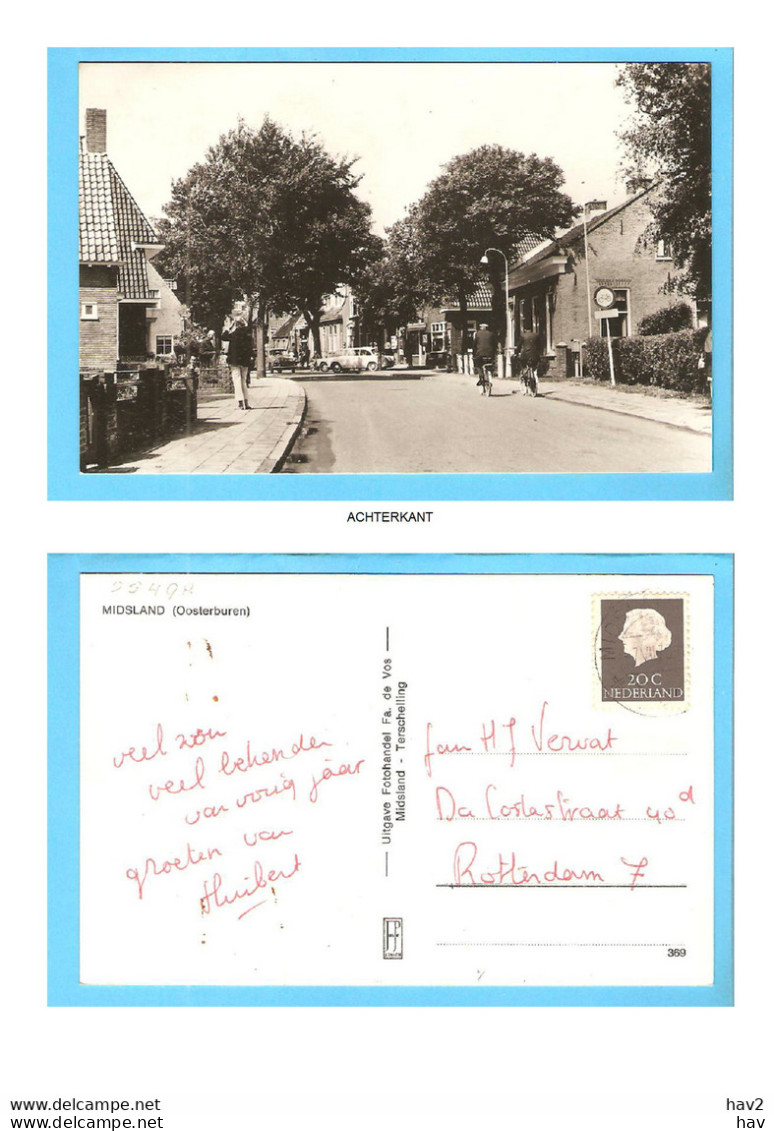 ACHTERKANT
MIDSLAND (Oosterburen)
20C
NEDERLAND
veel zon
veel bekenden
van vorig jaar
groeten van
Huibert
Uitgave Fotohandel Fa. de Vos
Midsland - Terschelling
fam HJ Verwat
Da Costastraat 40d
Rotterdam 7
369
hav2
https://www.delcampe.net
hav
https://www.delcampe.net